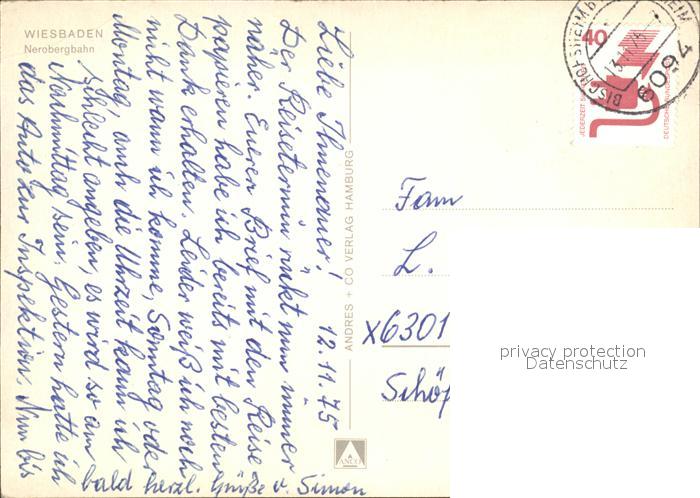 WIESBADEN
Nerobergbahn
Liebe Ilmenauer! 12.11.75
Der Reisetermin rückt nun immer
näher. Euren Brief mit den Reise
papieren habe ich bereits mit bestem
Dank erhalten. Leider weiß ich noch
nicht wann ich komme, Sonntag oder
Montag, auch die Uhrzeit kann ich
schlecht angeben, es wird so am
Nachmittag sein. Gestern hatte ich
das Auto zur Inspektion. Nun bis
bald herzl. Grüße v. Simon
ANDRES + CO VERLAG HAMBURG
ANCO
40
JEDERZEIT
DEUTSCHE BUNDES
BISCHOFSHEIM
6094
Fam
L.
X6301
Schöf
privacy protection
Datenschutz